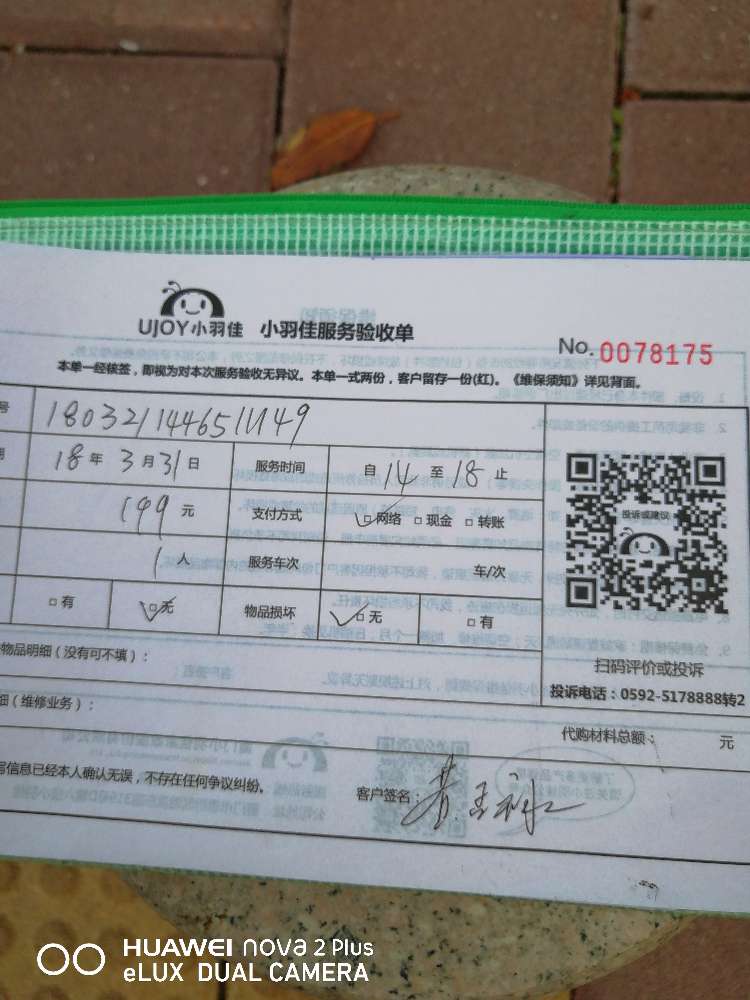 UJOY小羽佳 小羽佳服务验收单
No. 0078175
本单一经核签，即视为对本次服务验收无异议。本单一式两份，客户留存一份(红)。《维保须知》详见背面。
号 180321144651149
期 18年3月31日 服务时间 自14至18止
199元 支付方式 □网络 □现金 □转账
1人 服务车次 车/次
□有 □无 物品损坏 □无 □有
投诉或建议
扫码评价或投诉
投诉电话：0592-5178888转2
物品明细（没有可不填）：
细（维修业务）：
代购材料总额： 元
写信息已经本人确认无误，不存在任何争议纠纷。
客户签名：
HUAWEI nova 2 Plus
eLUX DUAL CAMERA